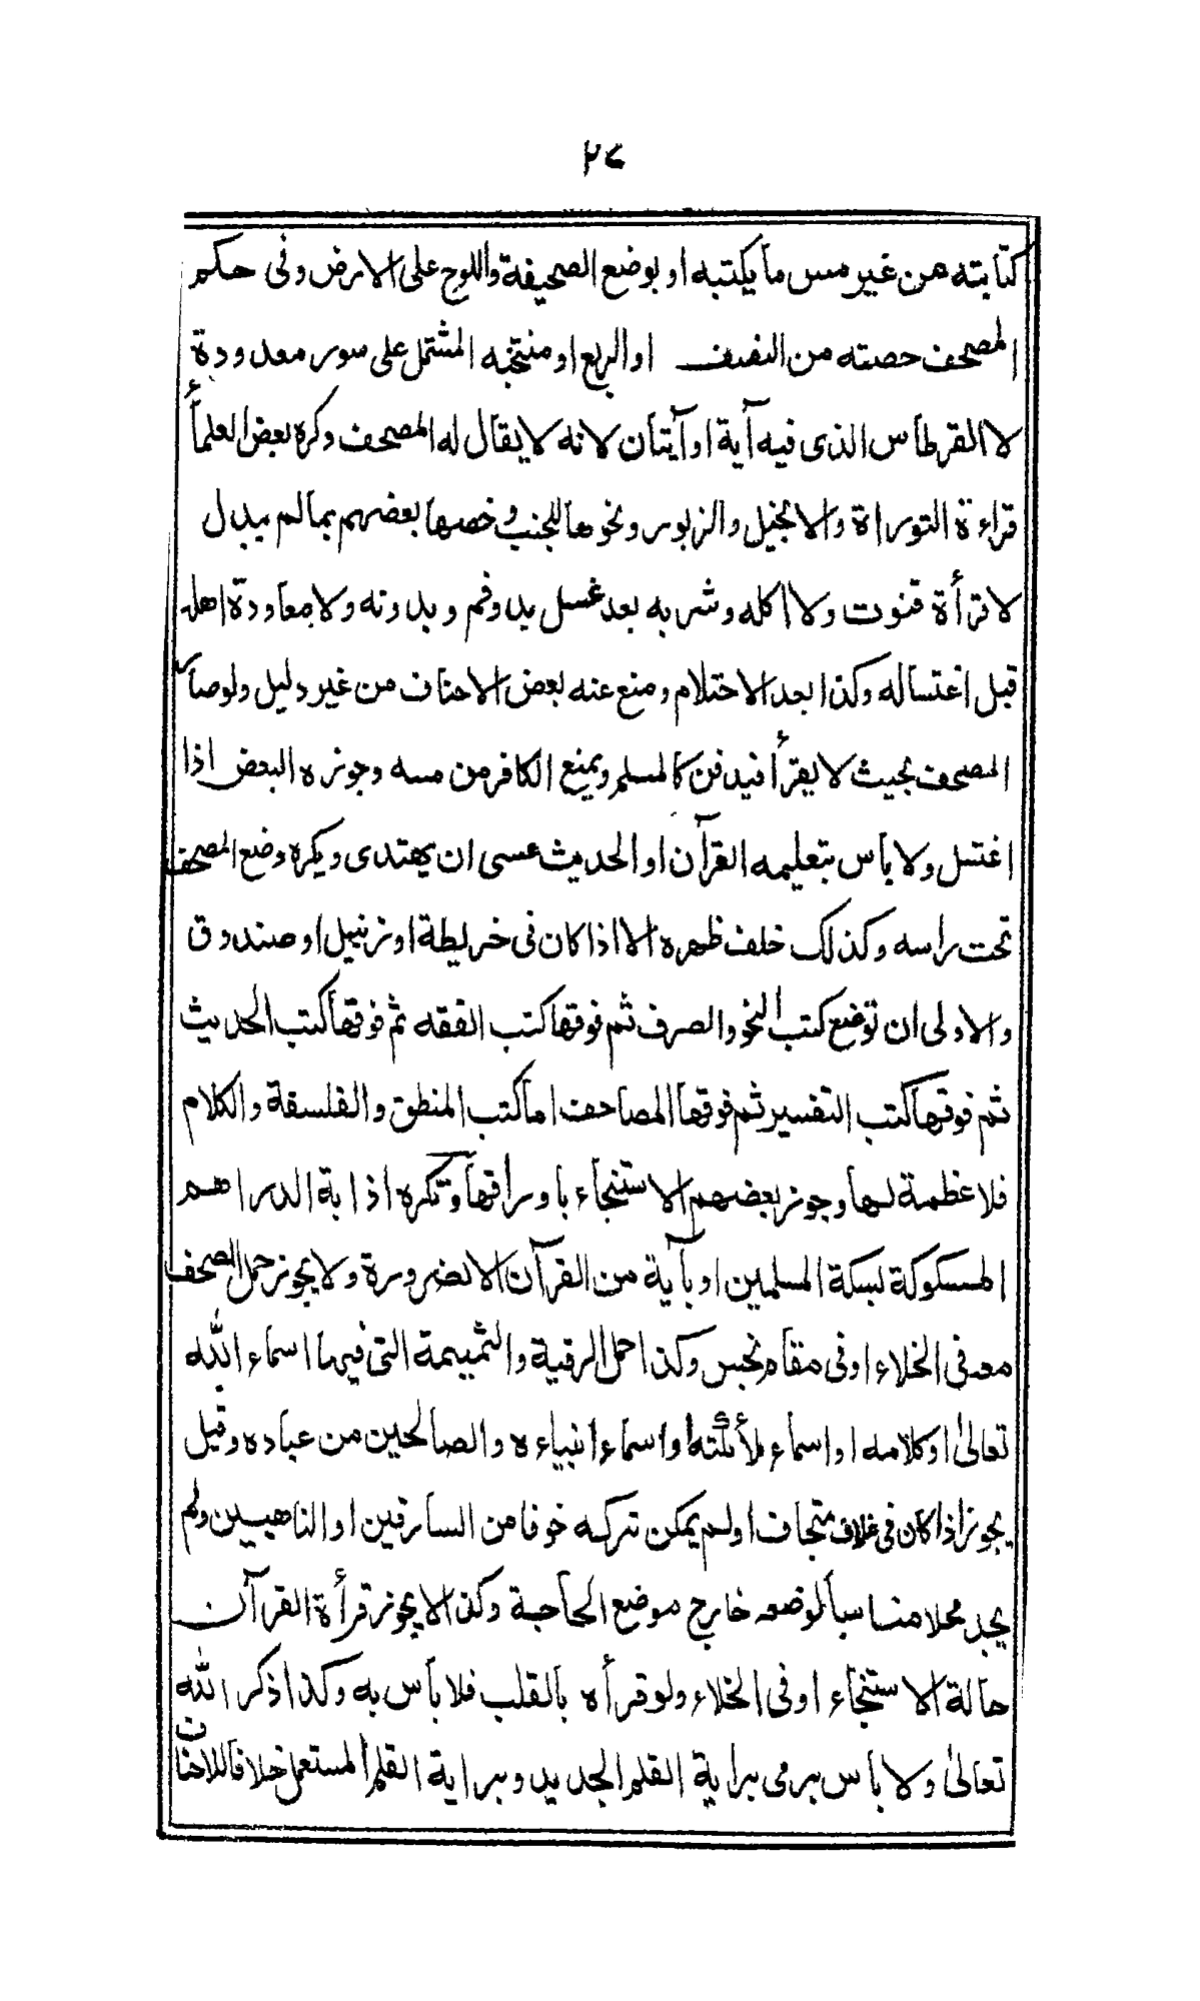 ٢٧
كتابته من غير مس ما يكتبه او بوضع الصحيفة واللوح على الارض وفى حكم
المصحف حصته من النصف او الربع او منتخبه المشتمل على سور معدودة
لا القرطاس الذى فيه آية او آيتان لانه لا يقال له المصحف وكره بعض العلمأ
قراءة التوراة والانجيل والزبور ونحوها للجنب وخصها بعضهم بما لم يبدل
لا قرأة قنوت ولا اكله وشربه بعد غسل يد وفم وبدونه ولا معاودة اهله
قبل اغتساله وكذا بعد الاحتلام ومنع عنه بعض الاحناف من غير دليل ولو صار
المصحف بحيث لا يقرأ فيدفن كالمسلم ويمنع الكافر من مسه وجوزه البعض اذا
اغتسل ولا باس بتعليمه القرآن او الحديث عسى ان يهتدى ويكره وضع المصحف
تحت راسه وكذلك خلف ظهره الا اذا كان فى خريطة او زنبيل او صندوق
والاولى ان توضع كتب النحو والصرف ثم فوقها كتب الفقه ثم فوقها كتب الحديث
ثم فوقها كتب التفسير ثم فوقها المصاحف اما كتب المنطق والفلسفة والكلام
فلا عظمة لها وجوز بعضهم الاستنجاء باوراقها وتكره اذابة الدراهم
المسكوكة بسكة المسلمين او بآية من القرآن الا لضرورة ولا يجوز حمل المصحف
معه فى الخلاء او فى مقام نجس وكذا حمل الرقية والتميمة التى فيها اسماء الله
تعالىٰ او كلامه او اسماء ملأئكته او اسماء انبياءه والصالحين من عباده وقيل
يجوز اذا كان فى غلاف متجاف او لم يمكن تركه خوفا من السارقين او الناهبين ولم
يجد محلا مناسبا لوضعه خارج موضع الحاجة وكذا لا يجوز قرأة القرآن
حالة الاستنجاء او فى الخلاء ولو قرأه بالقلب فلا باس به وكذا ذكر الله
تعالىٰ ولا باس برمى براية القلم الجديد وبراية القلم المستعمل خلافا للاحناف